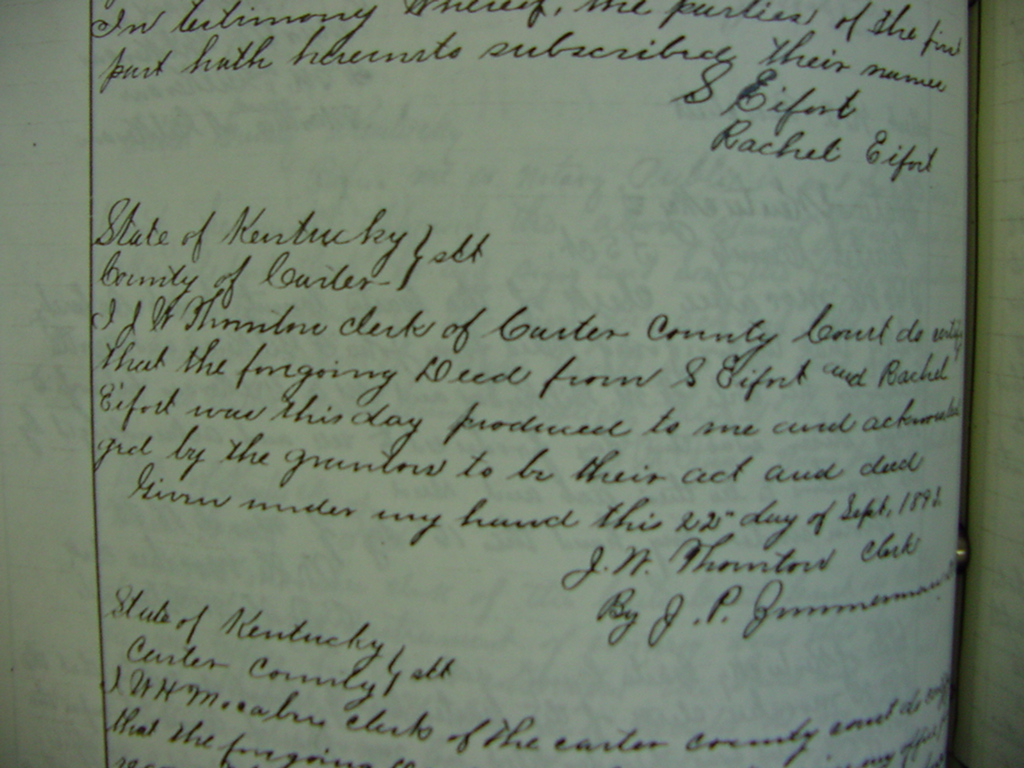 In testimony Whereof, the parties of the first
part hath hereunto subscribed their names
S Eifort
Rachel Eifort
State of Kentucky } sct
County of Carter
I J W Thornton clerk of Carter County Court do certify
that the forgoing Deed from S Eifort and Rachel
Eifort was this day produced to me and acknowled
ged by the grantors to be their act and deed
Given under my hand this 22" day of Sept, 189
J. W. Thornton Clerk
By J. P. Zimmerman
State of Kentucky } sct
Carter County
I W H clerk of the carter county court do certify
that the forgoing my office